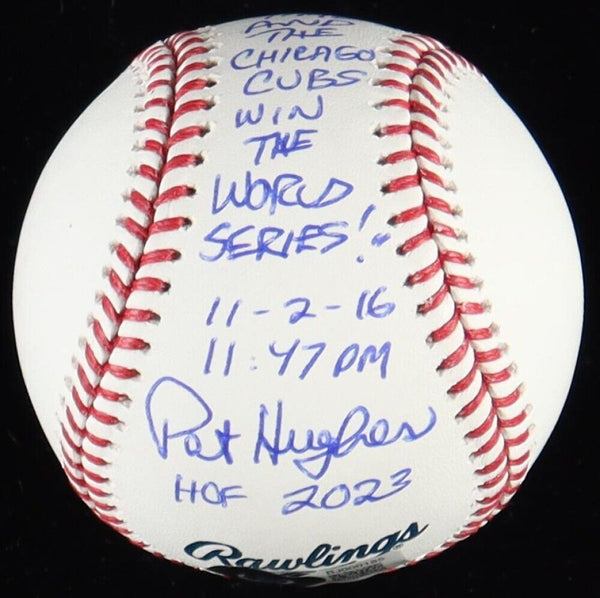 AND
THE
CHICAGO
CUBS
WIN
THE
WORLD
SERIES!
11-2-16
11:47 PM
Pat Hughes
HOF 2023
Rawlings